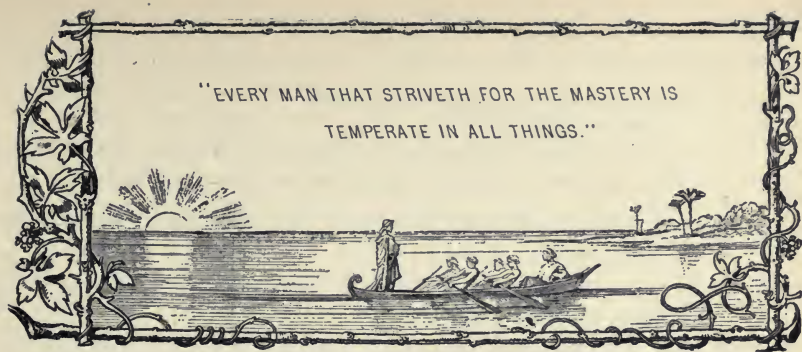 "EVERY MAN THAT STRIVETH FOR THE MASTERY IS
TEMPERATE IN ALL THINGS."